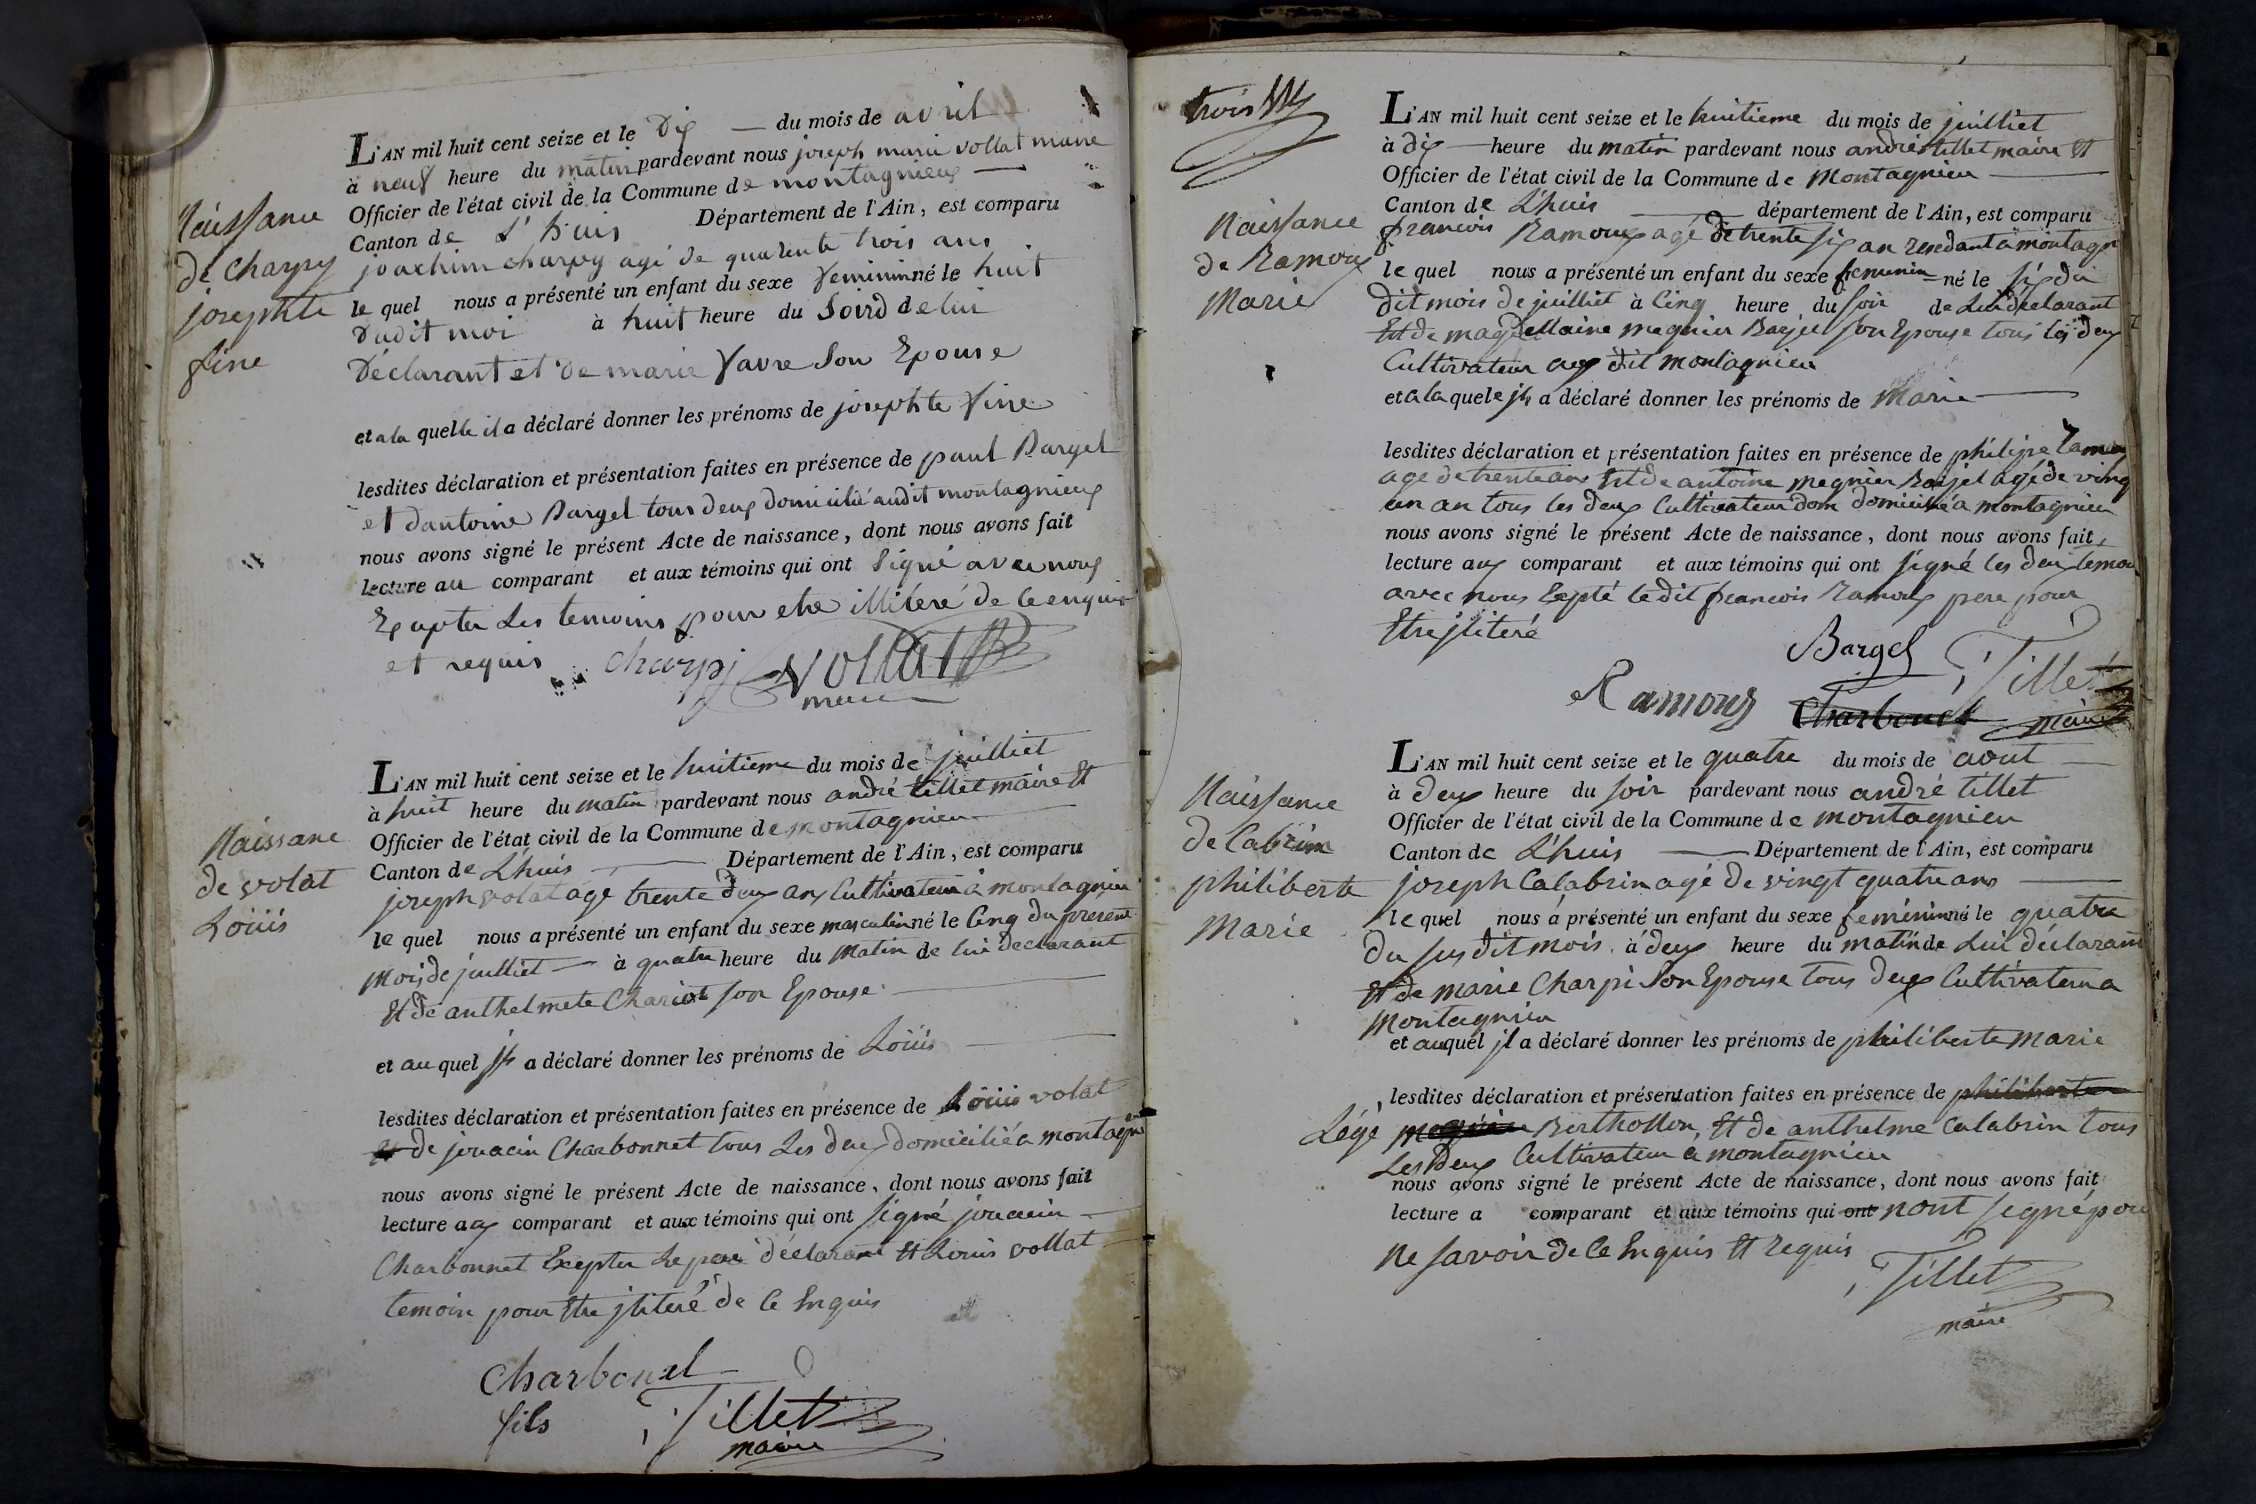 Naissance
de charpy
josephte
fine
L'AN mil huit cent seize et le Dix — du mois de avril
à neuf heure du matin pardevant nous joseph marie vollat maire
Officier de l'état civil de la Commune de montagnieux —
Canton de L'huis Département de l'Ain, est comparu
joachim charpy agé de quarente trois ans
le quel nous a présenté un enfant du sexe feminin né le huit
dudit moi à huit heure du Soird de lui
Déclarant et de marie favre Son Epouse
et a la quelle il a déclaré donner les prénoms de josephte fine
lesdites déclaration et présentation faites en présence de paul Bargel
et dantoine Bargel tous deux domicilié audit montagnieux
nous avons signé le présent Acte de naissance, dont nous avons fait
lecture au comparant et aux témoins qui ont Signé avec nous
Exapter Les temoins pour etre illiteré de ce enquis
et requis charpy vollat
maire
Naissane
de volat
Loüis
L'AN mil huit cent seize et le huitieme du mois de juilliet
à huit heure du matin pardevant nous andré tillet maire Et
Officier de l'état civil de la Commune de montagnieu —
Canton de L'huis — Département de l'Ain, est comparu
joseph volat agé trente deux ans Cultivateur à montagnieu
le quel nous a présenté un enfant du sexe masculin né le Cinq du présent
mois de juilliet — à quatre heure du matin de lui declarant
Et de anthelmete Chariot son Epouse —
et au quel jl a déclaré donner les prénoms de Loüis —
lesdites déclaration et présentation faites en présence de Loüis volat
Et de jouacin Charbonnet tous Les deux domicilié a montagni
nous avons signé le présent Acte de naissance, dont nous avons fait
lecture aux comparant et aux témoins qui ont signé jouacin —
Charbonnet Exepter Le pere déclarant Et Louis vollat
temoin pour Etre jliteré de Ce Enquis
Charbonel
fils Tillet
maire
trois
Naissance
de Ramoux
Marie
L'AN mil huit cent seize et le huitieme du mois de juilliet
à dix — heure du matin pardevant nous andré tillet maire Et
Officier de l'état civil de la Commune de Montagnieu —
Canton de L'huis — département de l'Ain, est comparu
francois Ramoux agé de trente six an resedant a montagn
le quel nous a présenté un enfant du sexe femenin — né le six du
dit mois de juilliet à Cinq heure du soir de Lui declarant
Et de magdellaine megnier Barjel son Epouse tous les deux
Cultivateur aux dit montagnieu
et a la quele jl a déclaré donner les prénoms de Marie —
lesdites déclaration et présentation faites en présence de philipe ramoux
agé de trente ans Et de antoine megnier Barjel agé de ving
un an tous les deux Cultivateur dom domicilié a montagnieu
nous avons signé le présent Acte de naissance, dont nous avons fait
lecture aux comparant et aux témoins qui ont signé les deux temoin
avec nous Exepté le dit francois Ramoux pere pour
Etre jliteré
Bargel Tillet
Ramoux Charbonet maire
Naissance
de Cabrin
philiberte
Marie
L'AN mil huit cent seize et le quatre du mois de aout —
à deux heure du soir pardevant nous andré tillet
Officier de l'état civil de la Commune de montagnieu
Canton de L'huis — Département de l'Ain, est comparu
joseph Calabrin agé de vingt quatre ans —
le quel nous a présenté un enfant du sexe feminin né le quatre
du sus dit mois à deux heure du matin de Lui déclarant
Et de marie Charpi Son Epouse tous deux Cultivateur a
Montagnieu
et auquel jl a déclaré donner les prénoms de philiberte marie
lesdites déclaration et présentation faites en présence de philiberte
Légé megnier Berthollon, Et de anthelme Calabrin tous
Les deux Cultivateur a montagnieu
nous avons signé le présent Acte de naissance, dont nous avons fait
lecture a comparant et aux témoins qui ont nont signé pour
ne savoir de Ce Enquis Et requis
Tillet
maire